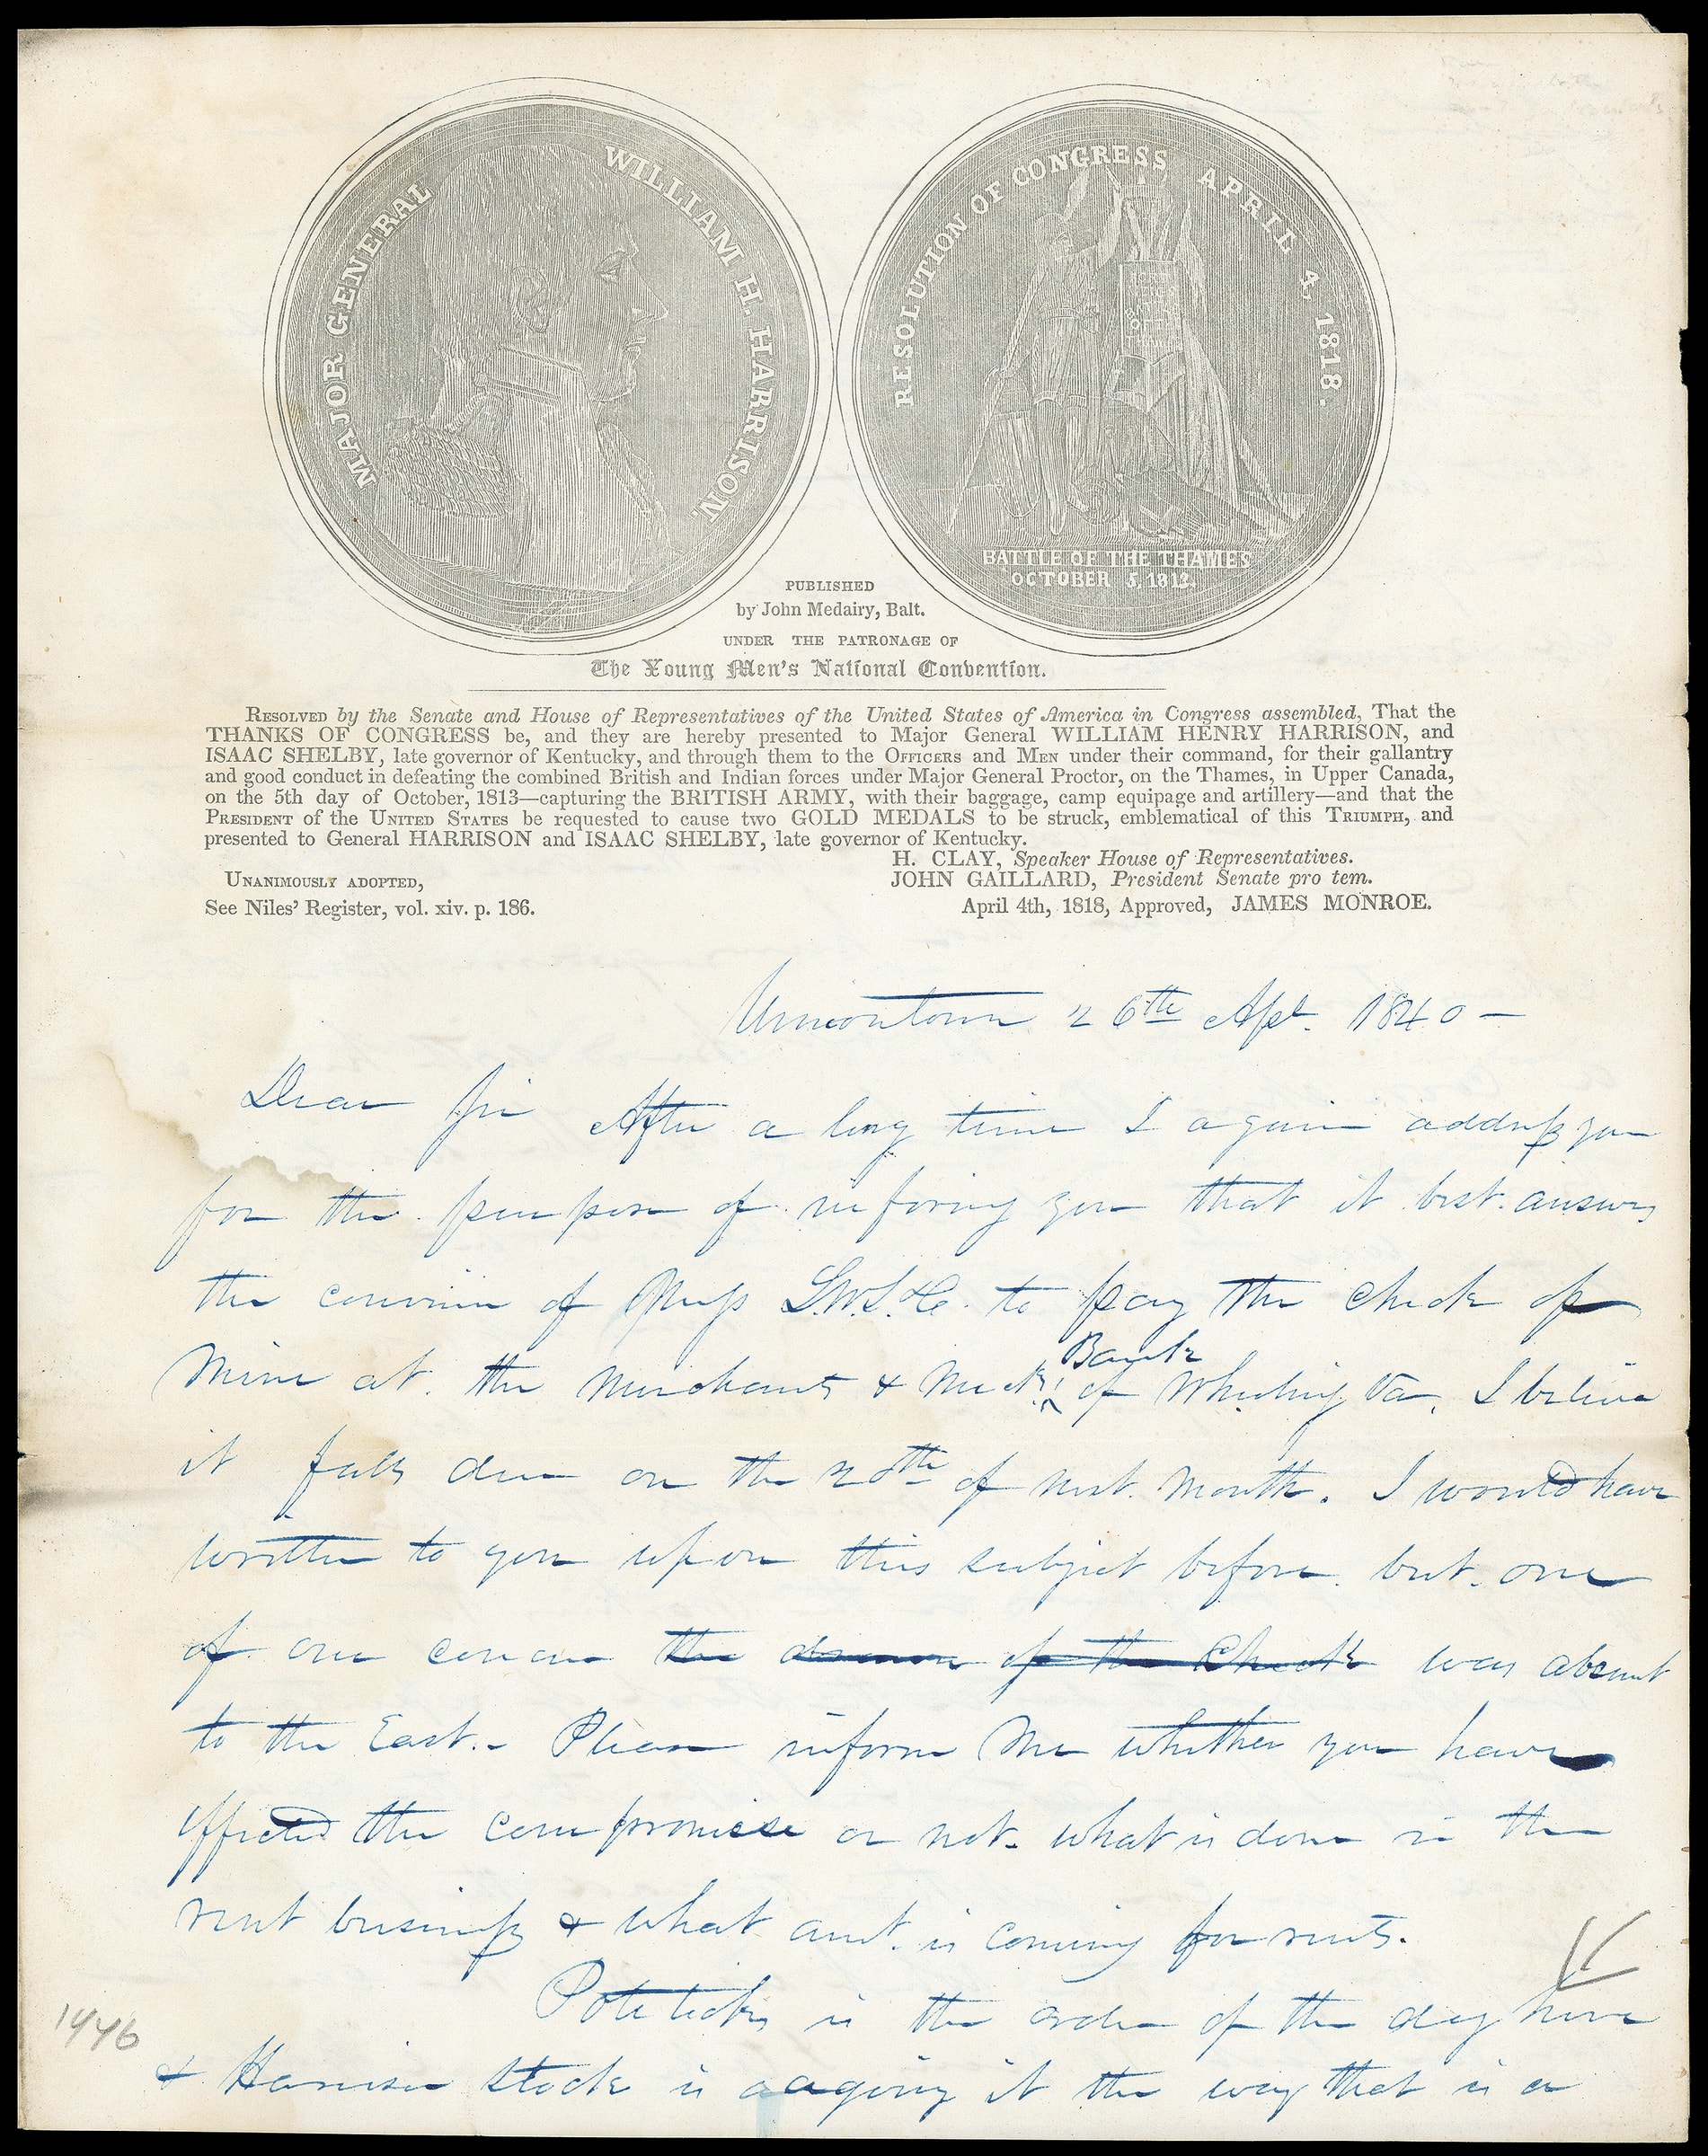 MAJOR GENERAL WILLIAM H. HARRISON.
RESOLUTION OF CONGRESS APRIL 4, 1818.
BATTLE OF THE THAMES
OCTOBER 5, 1812.
PUBLISHED
by John Medairy, Balt.
UNDER THE PATRONAGE OF
The Young Men's National Convention.
RESOLVED by the Senate and House of Representatives of the United States of America in Congress assembled, That the
THANKS OF CONGRESS be, and they are hereby presented to Major General WILLIAM HENRY HARRISON, and
ISAAC SHELBY, late governor of Kentucky, and through them to the OFFICERS and MEN under their command, for their gallantry
and good conduct in defeating the combined British and Indian forces under Major General Proctor, on the Thames, in Upper Canada,
on the 5th day of October, 1813—capturing the BRITISH ARMY, with their baggage, camp equipage and artillery—and that the
PRESIDENT of the UNITED STATES be requested to cause two GOLD MEDALS to be struck, emblematical of this TRIUMPH, and
presented to General HARRISON and ISAAC SHELBY, late governor of Kentucky.
H. CLAY, Speaker House of Representatives.
JOHN GAILLARD, President Senate pro tem.
UNANIMOUSLY ADOPTED,
See Niles' Register, vol. xiv. p. 186.
April 4th, 1818, Approved, JAMES MONROE.
Uniontown 26th Apl. 1840 —
Dear Sir After a long time I again address you
for the purpose of inforing you that it best answers
the concern of Mess L.W.S. & Co. to pay the check of
mine at the Merchants & Mechs. Bank of Wheeling Va. I believe
it falls due on the 20th of next month. I would have
written to you upon this subject before but one
of our concern the of the Check was absent
to the East. - Please inform me whether you have
effected the compromise or not. what is done in the
rent business & what amt. is coming for rents.
Politicks is the order of the day here
& Harrison Stock is agoing it the way that is a
1446